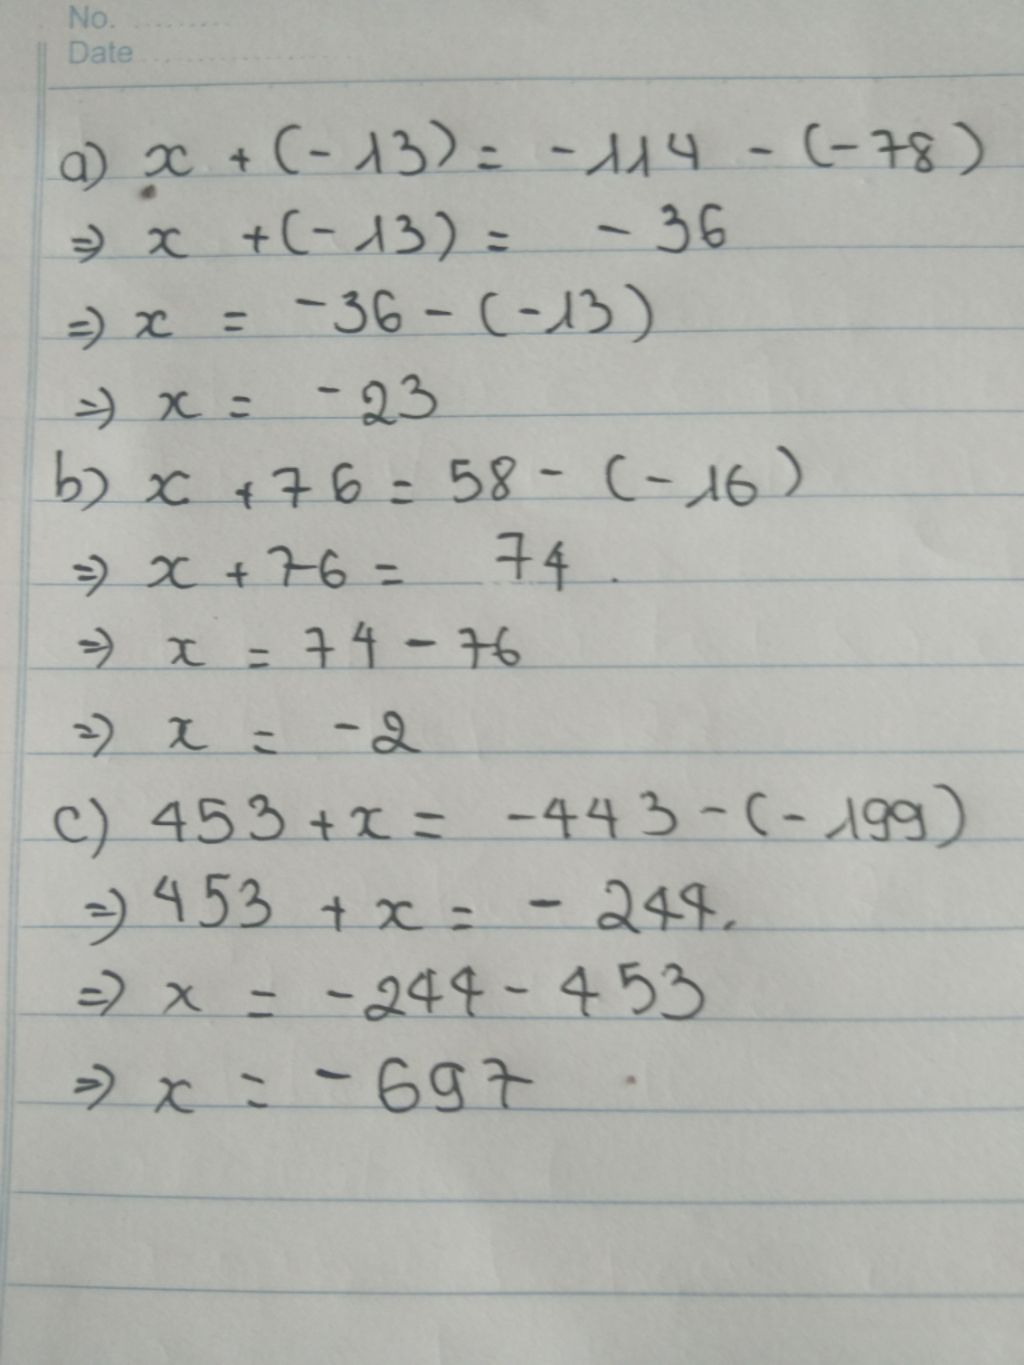 No. ............
Date ........................
a) x + (-13) = -114 - (-78)
=> x + (-13) = - 36
=> x = -36 - (-13)
=> x = -23
b) x + 76 = 58 - (-16)
=> x + 76 = 74.
=> x = 74 - 76
=> x = -2
c) 453 + x = -443 - (-199)
=> 453 + x = - 244.
=> x = -244 - 453
=> x = -697